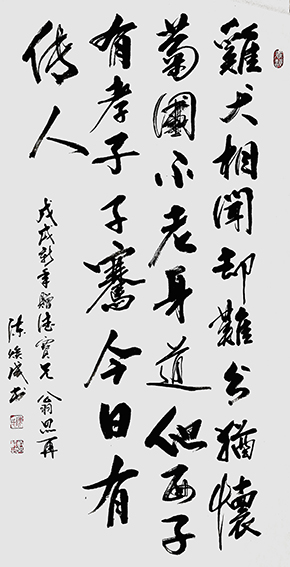 雞犬相聞却難分猶懷
菊圃不老身道他西子
有孝子子騫今日有
傳人
戊戌新年贈德寶兄 翁思再
陳